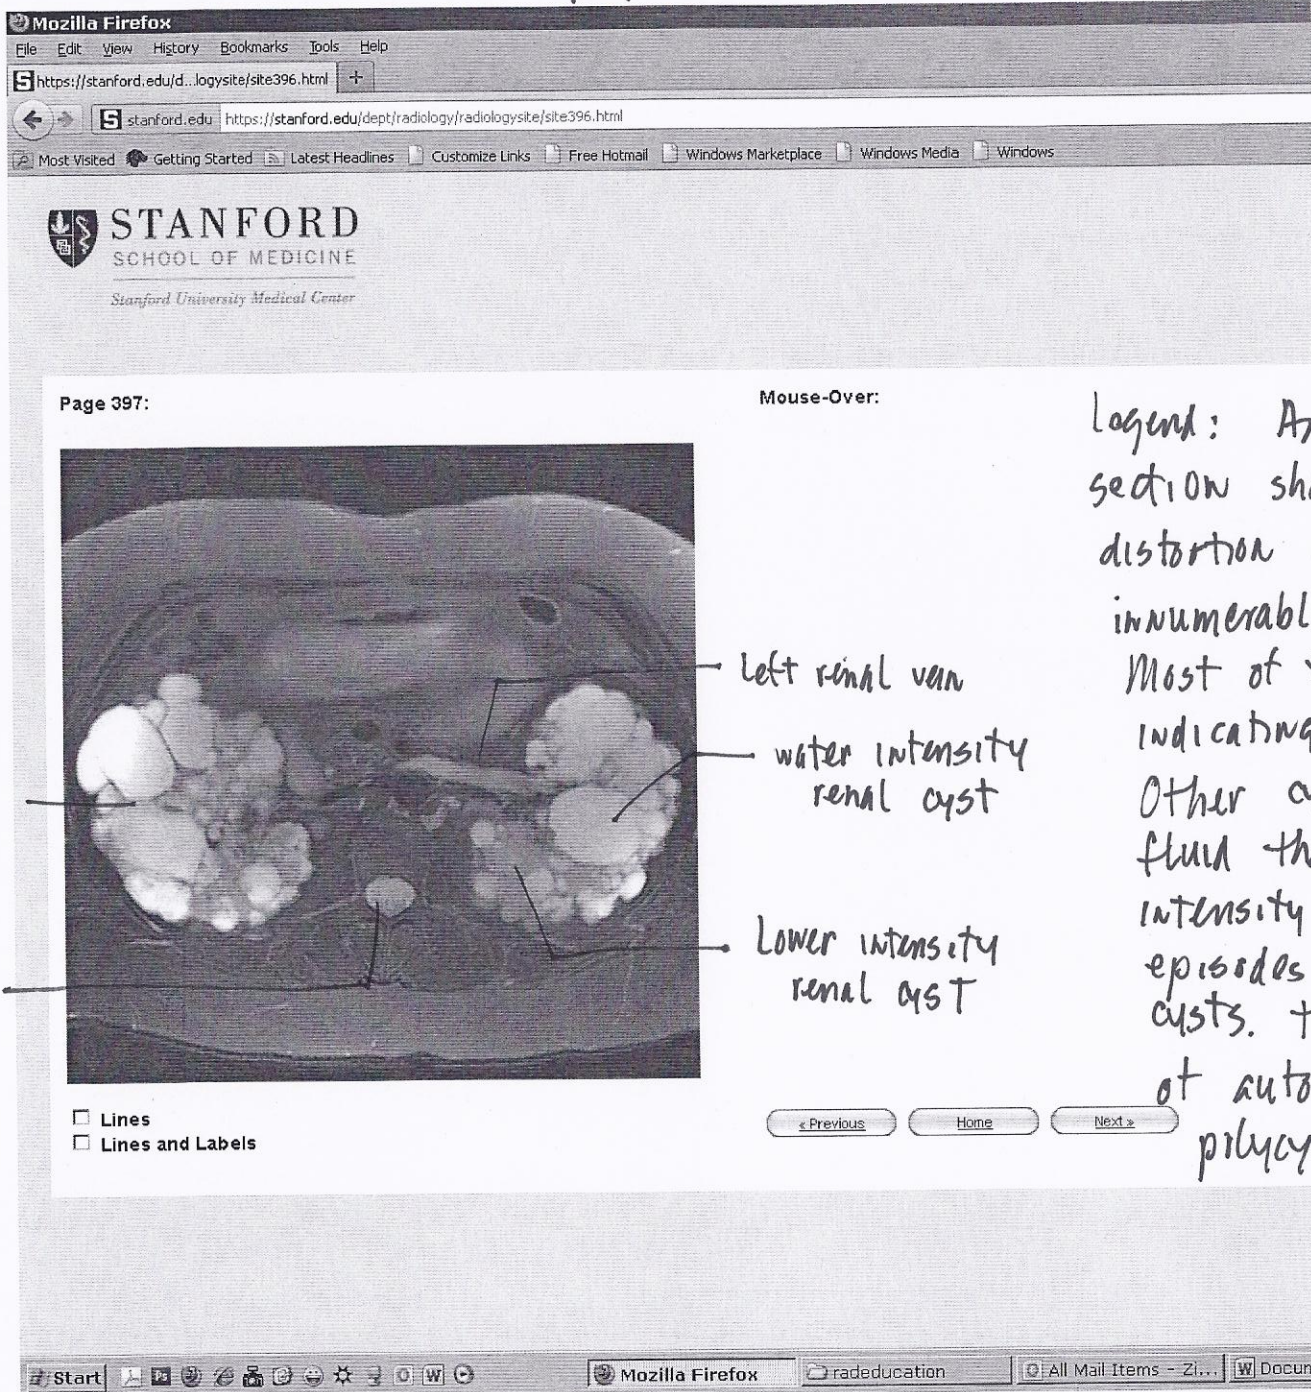 Mozilla Firefox
File Edit View History Bookmarks Tools Help
https://stanford.edu/d...logysite/site396.html +
stanford.edu https://stanford.edu/dept/radiology/radiologysite/site396.html
Most Visited Getting Started Latest Headlines Customize Links Free Hotmail Windows Marketplace Windows Media Windows
STANFORD
SCHOOL OF MEDICINE
Stanford University Medical Center
Page 397:
Mouse-Over:
Left renal vein
water intensity
renal cyst
Lower intensity
renal cyst
Legend:
section
distortion
innumerabl
Most of
indicating
Other
fluid
intensity
episodes
cysts.
of auto
polycy
Lines
Lines and Labels
« Previous Home Next »
Start Mozilla Firefox radeducation All Mail Items - Zi... Docum